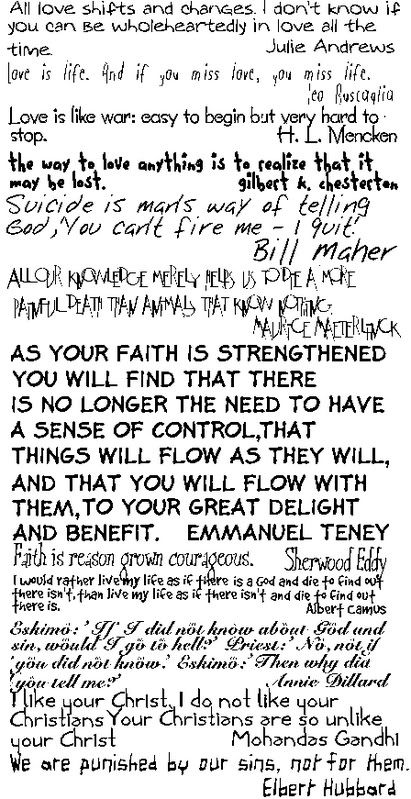 All love shifts and changes. I don't know if
you can be wholeheartedly in love all the
time. Julie Andrews
Love is life. And if you miss love, you miss life.
Leo Buscaglia
Love is like war: easy to begin but very hard to
stop. H. L. Mencken
the way to love anything is to realize that it
may be lost. gilbert k. chesterton
Suicide is man's way of telling
God, 'You can't fire me - I quit.'
Bill Maher
ALL OUR KNOWLEDGE MERELY HELPS US TO DIE A MORE
PAINFUL DEATH THAN ANIMALS THAT KNOW NOTHING.
MAURICE MAETERLINCK
AS YOUR FAITH IS STRENGTHENED
YOU WILL FIND THAT THERE
IS NO LONGER THE NEED TO HAVE
A SENSE OF CONTROL,THAT
THINGS WILL FLOW AS THEY WILL,
AND THAT YOU WILL FLOW WITH
THEM,TO YOUR GREAT DELIGHT
AND BENEFIT. EMMANUEL TENEY
Faith is reason grown courageous. Sherwood Eddy
I would rather live my life as if there is a God and die to find out
there isn't, than live my life as if there isn't and die to find out
there is. Albert Camus
Eskimö: 'If I did nöt knöw aböut Göd und
sin, wöuld I gö tö hell?' Priest: 'Nö, nöt if
yöu did nöt knöw.' Eskimö: 'Then why did
yöu tell me?' Annie Dillard
I like your Christ, I do not like your
Christians Your Christians are so unlike
your Christ Mohandas Gandhi
We are punished by our sins, not for them.
Elbert Hubbard